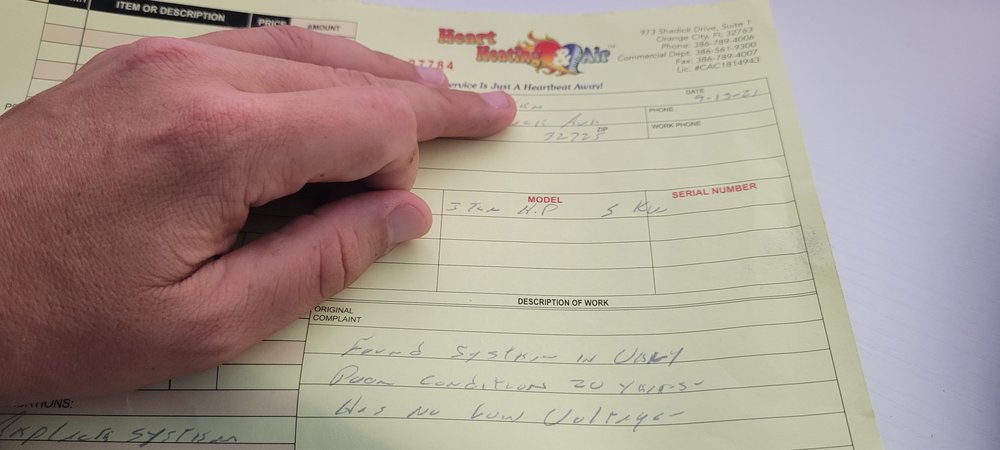 ITEM OR DESCRIPTION PRICE AMOUNT
Heart
Heating & Air
973 Shadick Drive, Suite 1
Orange City, FL 32763
Phone: 386-789-4006
Commercial Dept. 386-561-9300
Fax: 386-789-4007
Lic. #CAC1814943
7784
ervice Is Just A Heartbeat Away!
DATE
9-13-21
PHONE
32725
ZIP
WORK PHONE
MODEL
SERIAL NUMBER
3 Ton H.P 5 KW
DESCRIPTION OF WORK
ORIGINAL
COMPLAINT
Found System in Very
Poor Conditions 20 years-
Has No Low Voltage-
ATIONS:
System